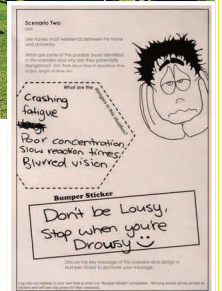 Scenario Two
Lee
Lee travels most weekends between his home
and university.
What are some of the possible issues identified
in the scenario and why are they potentially
dangerous?
What are the
Crashing
fatigue
Poor concentration,
Slow reaction times,
Blurred vision
Bumper Sticker
Don't be Lousy,
Stop when you're
Drowsy
Discuss the key message of the scenario and design a
bumper sticker to promote your message.